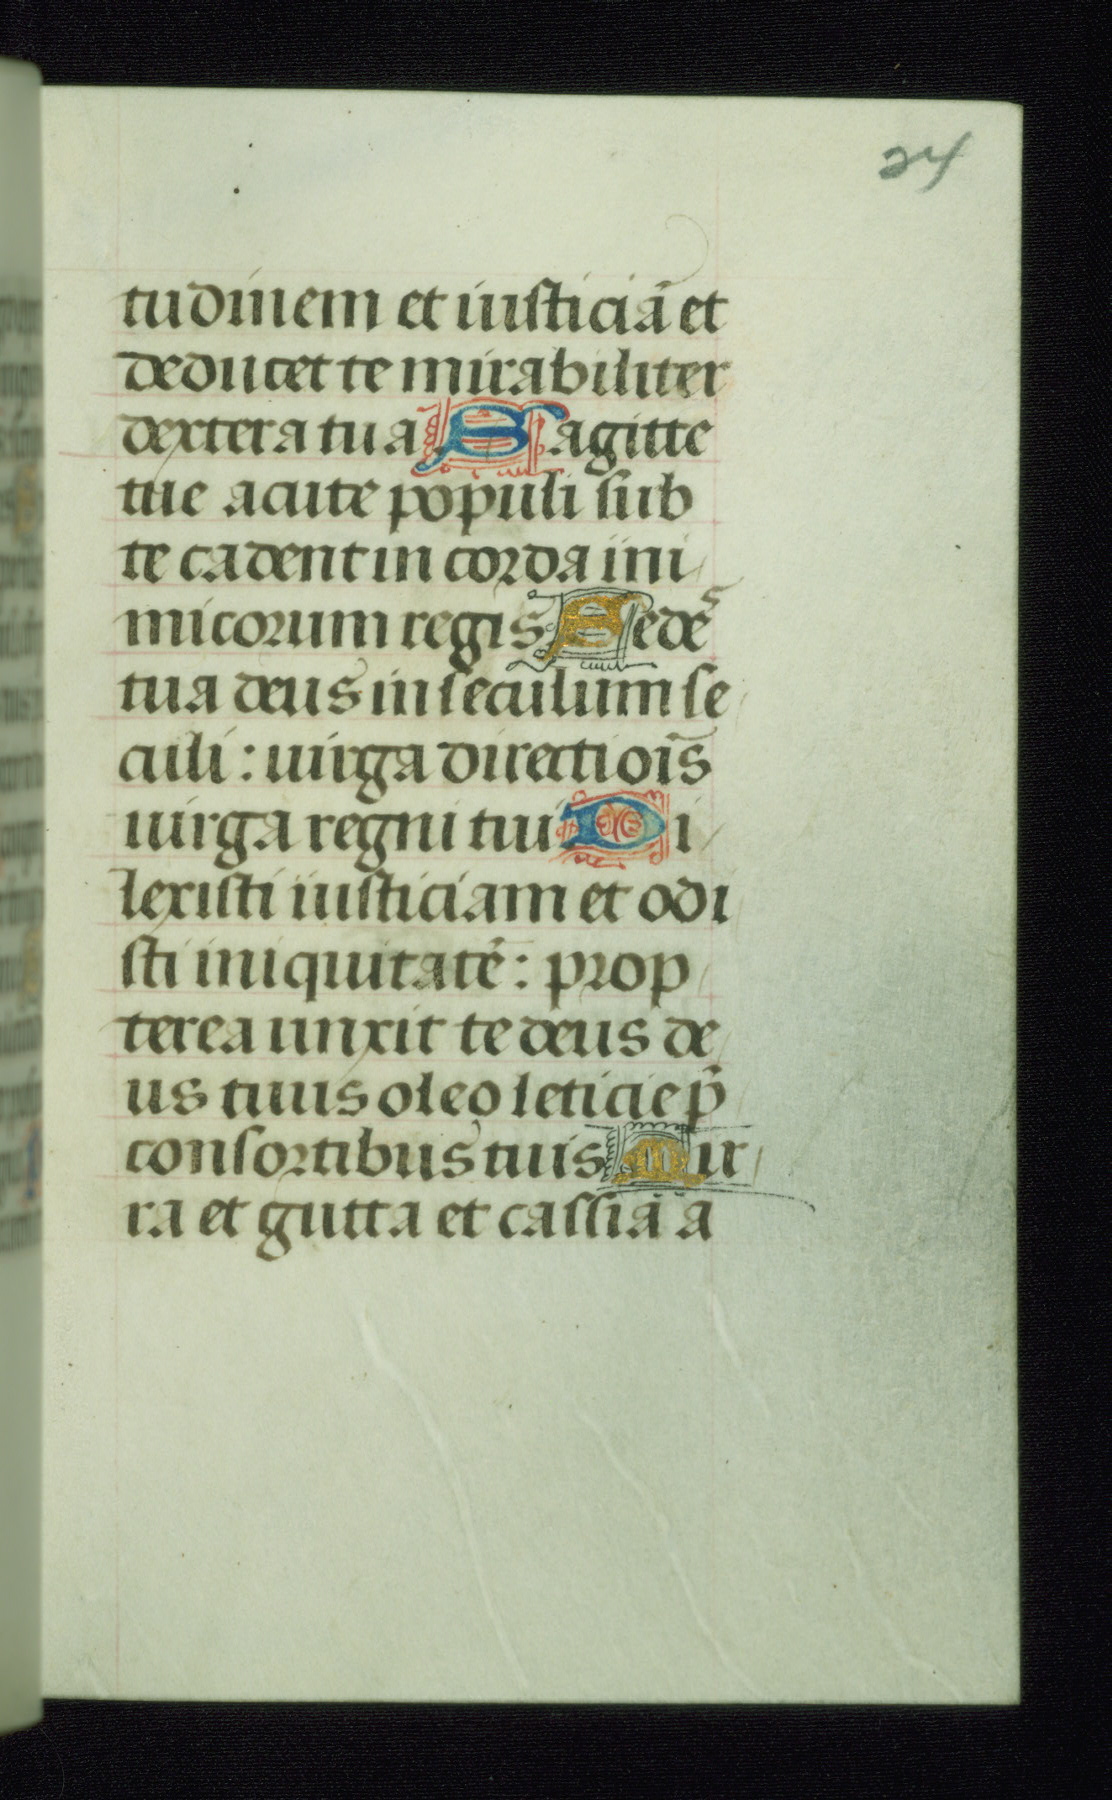 24
tudinem et iusticiā et
deducet te mirabiliter
dextera tua Sagitte
tue acute populi sub
te cadent in corda ini
micorum regis Sedes
tua deus in seculum se
culi : uirga directiōis
uirga regni tui Di
lexisti iusticiam et odi
sti iniquitatē : prop
terea unxit te deus de
us tuus oleo leticie p̄
consortibus tuis Mir
ra et gutta et cassiā a